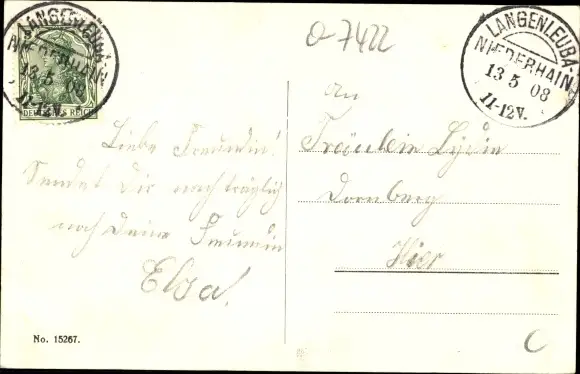 LANGENLEUBA-
NIEDERHAIN
13 5 08
11-12V.
DEUTSCHES REICH
O-7422
LANGENLEUBA-
NIEDERHAIN
13 5 08
11-12V.
an
Fräulein Lydia
Dornberg
Hier
Liebe Freundin!
Sendet Dir nachträglich
noch Deine Freundin
Elsa!
No. 15267.
C